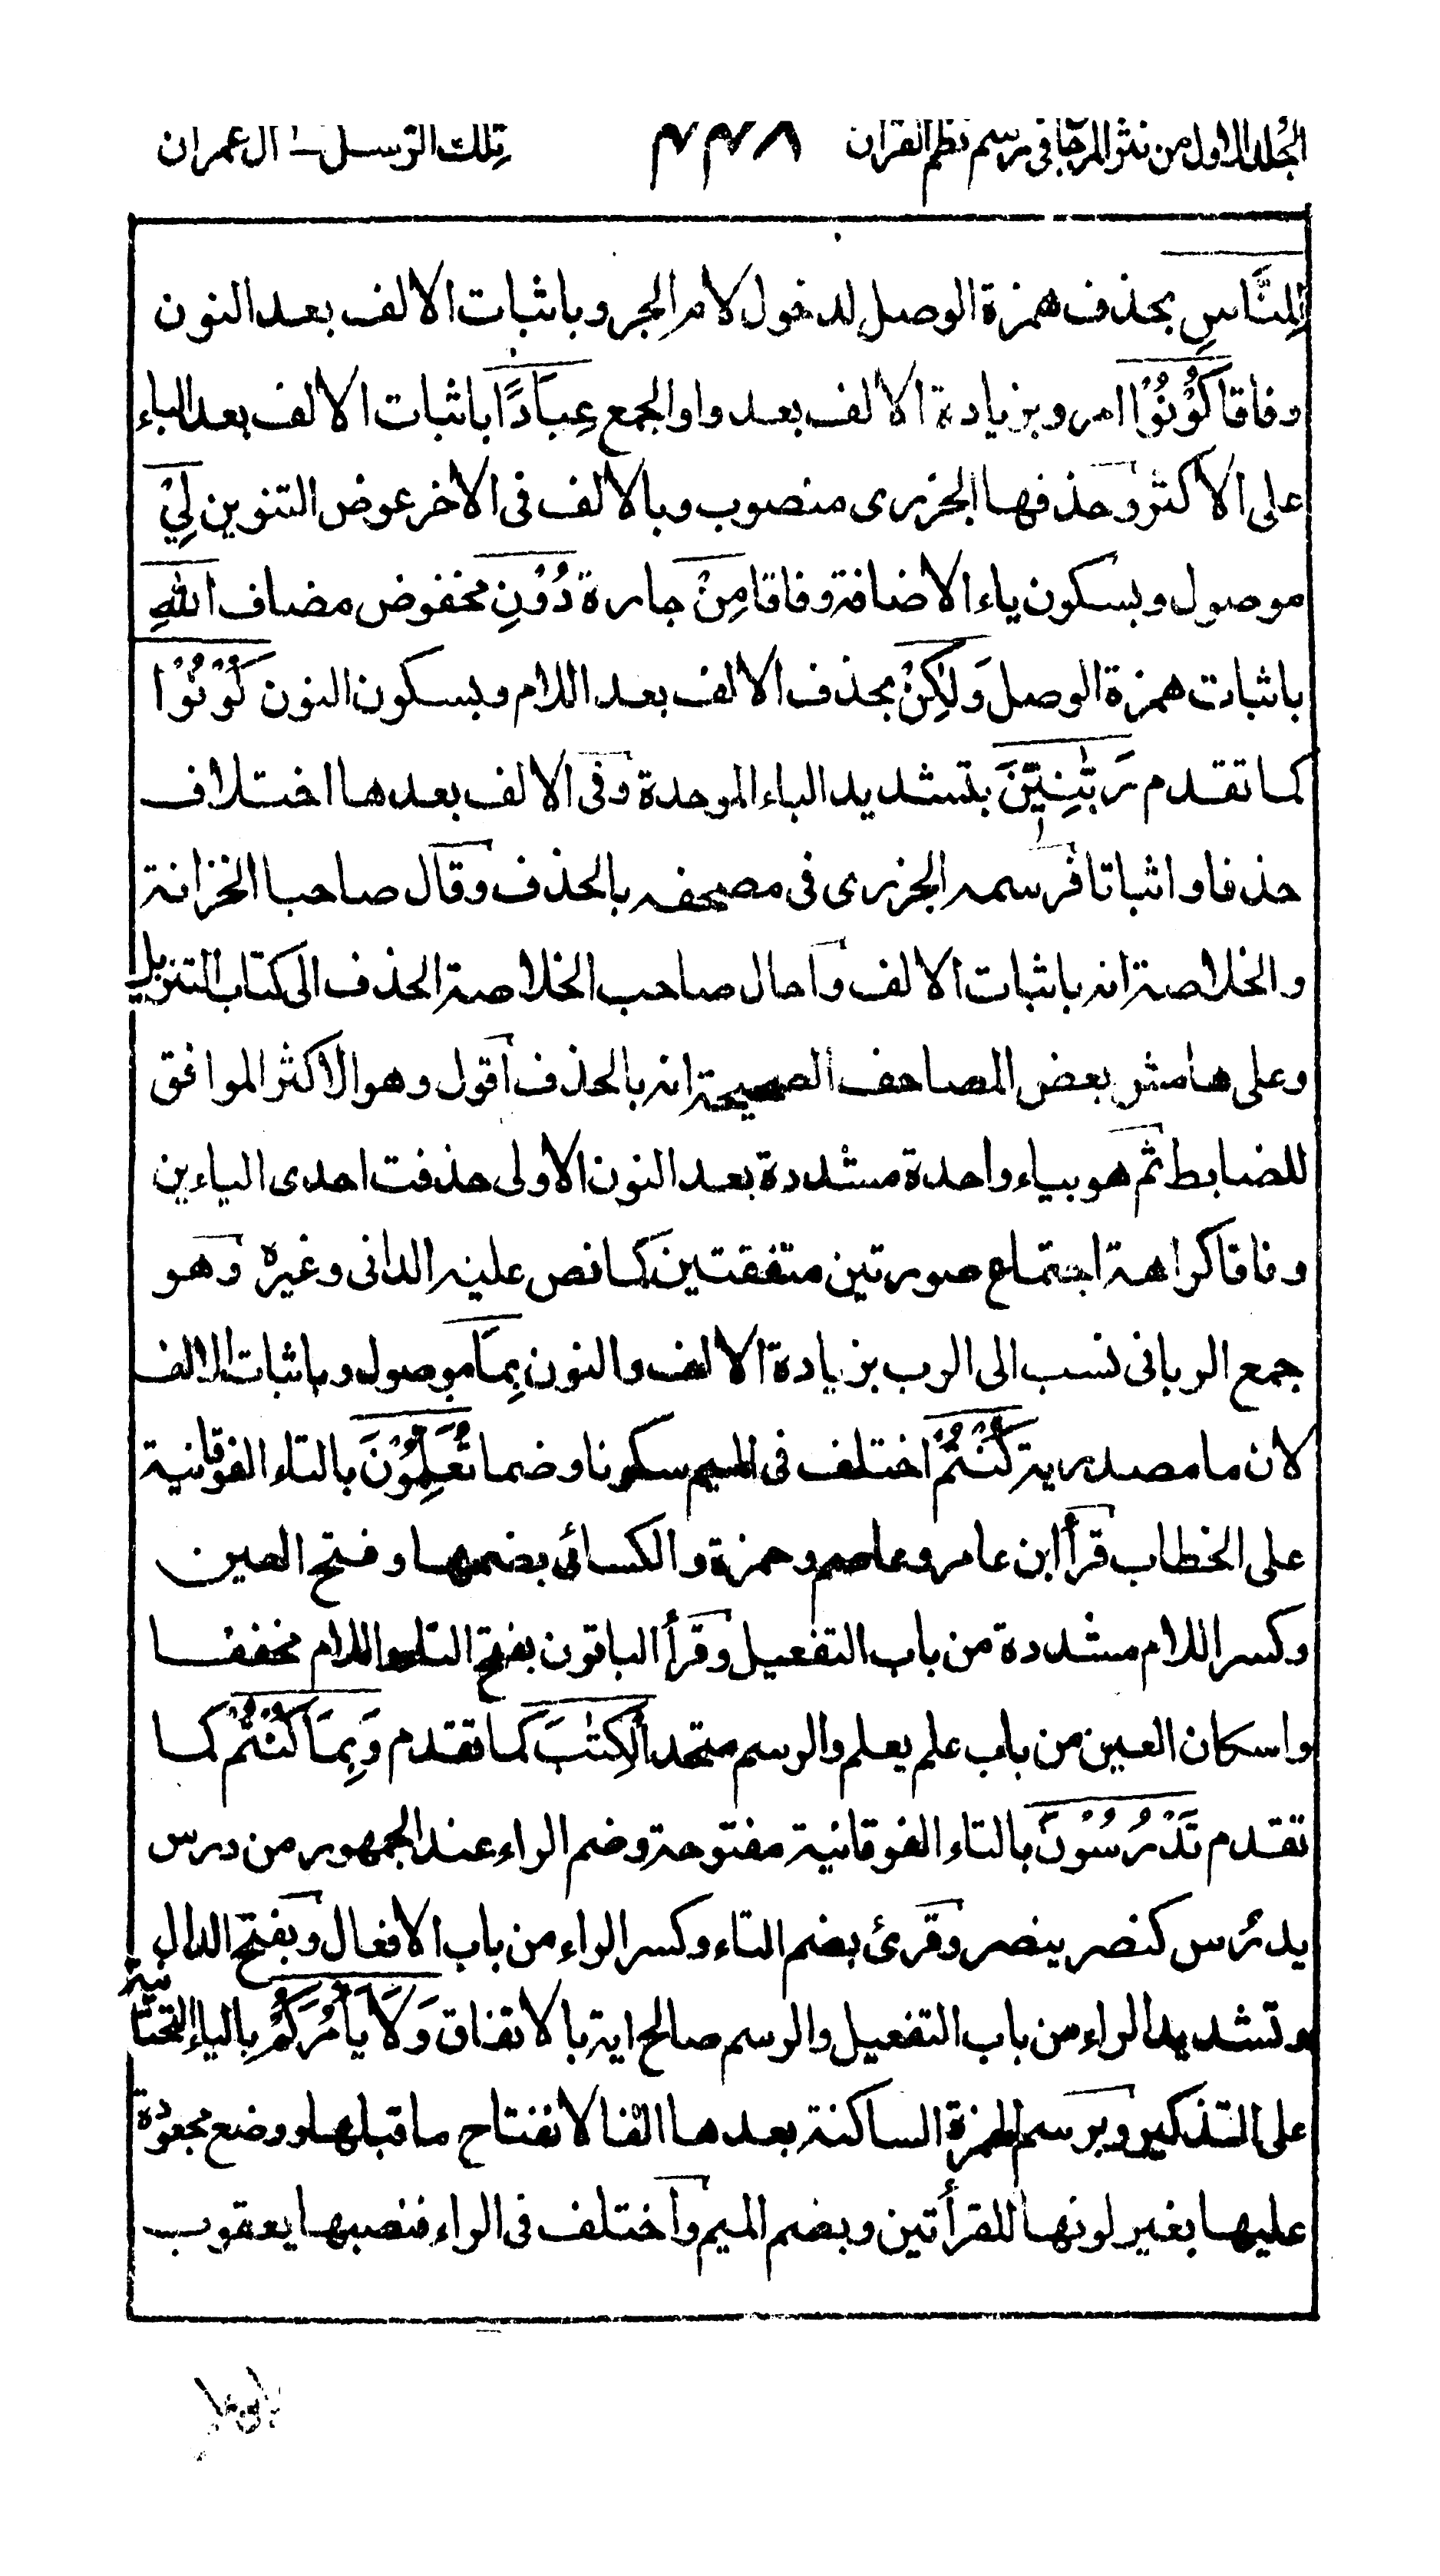 الجلد الاول من نثر المرجان فى رسم نظم القران ٤٤٨ تلك الرسل ــ ال عمران
لِلنَّاسِ بحذف همزة الوصل لدخول لام الجر وباثبات الالف بعد النون
وفاقا كُوْنُوْا امر وبزيادة الالف بعد واو الجمع عِبَادًا باثبات الالف بعد الباء
على الاكثر وحذفها الجزرى منصوب وبالالف فى الاخر عوض التنوين لِيْ
موصول وبسكون ياء الاضافة وفاقا مِنْ جارة دُوْنِ مخفوض مضاف اللّٰهِ
باثبات همزة الوصل وَلٰكِنْ بحذف الالف بعد اللام وبسكون النون كُوْنُوْا
كما تقدم رَبّٰنِيّٖنَ بتشديد الباء الموحدة وفى الالف بعدها اختلاف
حذفا واثباتا فرسمه الجزرى فى مصحفه بالحذف وقال صاحبا الخزانة
والخلاصة انه باثبات الالف وآحال صاحب الخلاصة الحذف الى كتاب التنزيل
وعلى هامش بعض المصاحف الصحيحة انه بالحذف اقول وهو الاكثر الموافق
للضابط ثم هو بياء واحدة مشددة بعد النون الاولى حذفت احدى الياءين
وفاقا كراهة اجتماع صورتين متفقتين كما نص عليه الدانى وغيره وهو
جمع الربانى نسب الى الرب بزيادة الالف والنون بِمَا موصول وباثبات الالف
لان ما مصدرية كُنْتُمْ اختلف فى الميم سكونا وضما تُعَلِّمُوْنَ بالتاء الفوقانية
على الخطاب قرأ ابن عامر وعاصم وحمزة والكسائى بضمها وفتح العين
وكسر اللام مشددة من باب التفعيل وقرأ الباقون بفتح التاء واللام مخففا
واسكان العين من باب علم يعلم والرسم متحد الْكِتٰبَ كما تقدم وَبِمَا كُنْتُمْ كما
تقدم تَدْرُسُوْنَ بالتاء الفوقانية مفتوحة وضم الراء عند الجمهور من درس
يدرُس كنصر ينصر وقرئ بضم التاء وكسر الراء من باب الافعال وبفتح الدال
وتشديد الراء من باب التفعيل والرسم صالح اية بالاتفاق وَلَا يَأْمُرَكُمْ بالياء التحتانية
على التذكير وبرسم الهمزة الساكنة بعدها الفا لانفتاح ما قبلها ووضع مجعودة
عليها بغير لونها للقرأتين وبضم الميم وآختلف فى الراء فنصبها يعقوب